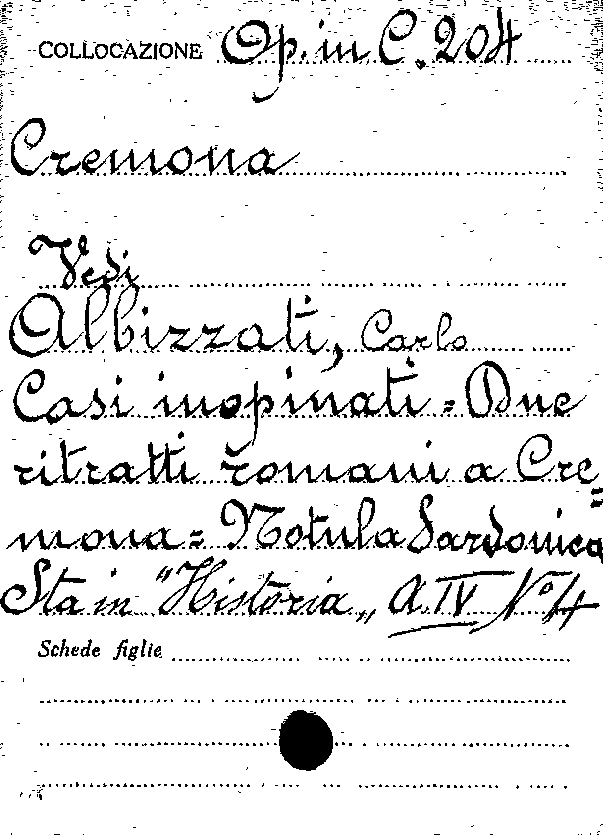 COLLOCAZIONE Op. in C. 204
Cremona
Vedi
Albizzati, Carlo
Casi inopinati = Due
ritratti romani a Cre=
mona = Notula Sardonica
Sta in "Historia„ A. IV N° 4
Schede figlie